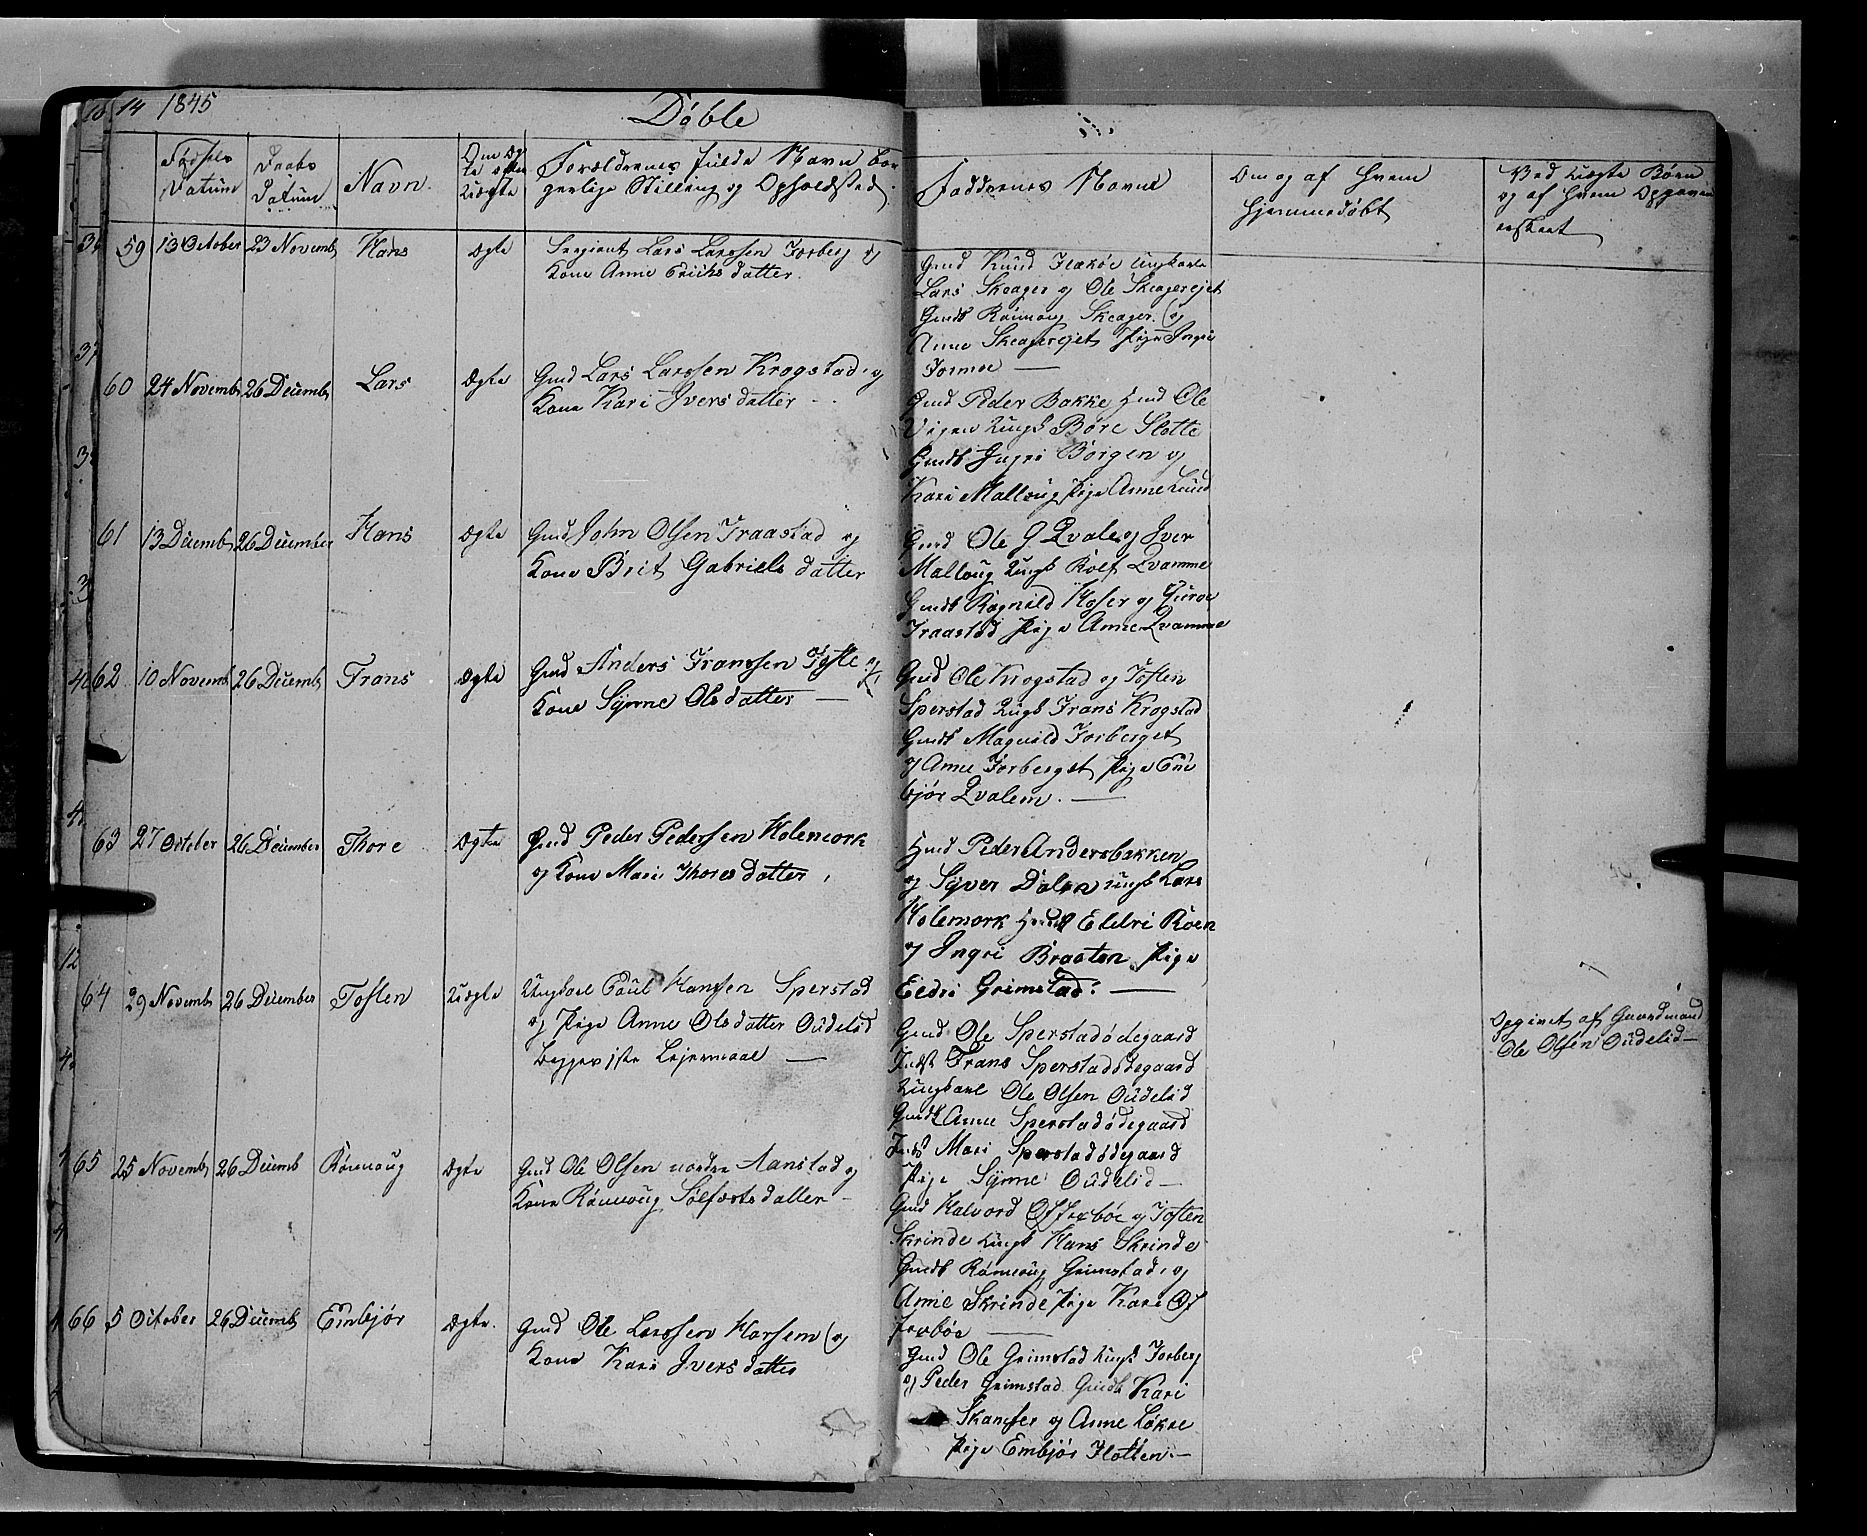 14 1845
Døbte
Fødsels Datum
Daabs Datum
Navn
Om Æg-
te eller
Uægte
Forældrenes fulde Navn bor-
gerlige Stilling og Opholdsted
Faddernes Navne
Om og af Hvem
hjemmedøbt
Ved Uægte Børn
og af Hvem Opgaven
59 13 October 23 Novemb Hans Ægte
Sergiant Lars Larssen Forberg og
Kone Anne Eriksdatter.
Gmd Knud Ungkarle
Lars Skeager og Ole Skeagerejet
Gmdk Rönnoug Skeager og
Anne Skeagerejet Pige Ingri
60 24 Novemb 26 Decemb Lars Ægte
Gmd Lars Larssen Krogstad og
Kone Kari Iversdatter
Gmd Peder Bakke Hmd Ole
Vigen Ungk Børe Slette
Gmdk Ingri Börgen og
Kari Malloug Pige Anne Lund
61 13 Decemb 26 December Hans Ægte
Gmd John Olsen Traastad og
Kone Brit Gabriels datter
Gmd Ole G Qvale og Iver
Malloug Ungk Rolf Qvamme
Gmdk Ragnild og Guroe
Traastad Pige Anne Qvamme
62 10 Novemb 26 Decemb Frans Ægte
Gmd Anders Franssen og
Kone Synne Olsdatter —
Gmd Ole Krogstad og Josten
Sperstad Ungk Frans Krogstad
Gmdk Magnild Forberget
og Anne Forberget Pige Em
bjør Qvalem. —
63 27 October 26 December Thore Ægte
Gmd Peder Pederssen Holemork
og Kone Mari Thoresdatter
Hmd Peder Andersbakken
og Syver Dalen Ungk Lars
Holemork Eldri Roen
og Ingri Braaten Pige
Eldri Grimstad. —
64 29 Novemb 26 December Josten Uægte
Ungkarl Poul Hanssen Sperstad
og Pige Anne Olsdatter Oudelid
Begges 1ste Lejermaal —
Gmd Ole Sperstadødegaard
Indst Frans Sperstadødegaard
Ungkarl Ole Olsen Oudelid
Gmdk Anne Sperstadødegaard
Indst Mari Sperstadødegaard
Pige Synne Oudelid —
Opgivet af Gaardmand
Ole Olsen Oudelid —
65 25 Novemb 26 Decemb Rönnoug Ægte
Gmd Ole Olsen nordre Aanstad og
Kone Rönnoug Solfæstsdatter —
Gmd Halvord og Josten
Skrinde Ungk Hans Skrinde
Gmdk Rönnoug Grimstad og
Anne Skrinde Pige Kari
66 5 October 26 Decemb Embjør Ægte.
Gmd Ole Larssen og
Kone Kari Iversdatter
Gmd Ole Grimstad Ungk Forberg
og Peder Grimstad Gmdk Kari
Skamser og Anne Løkke
Pige Embjør Flatten. —